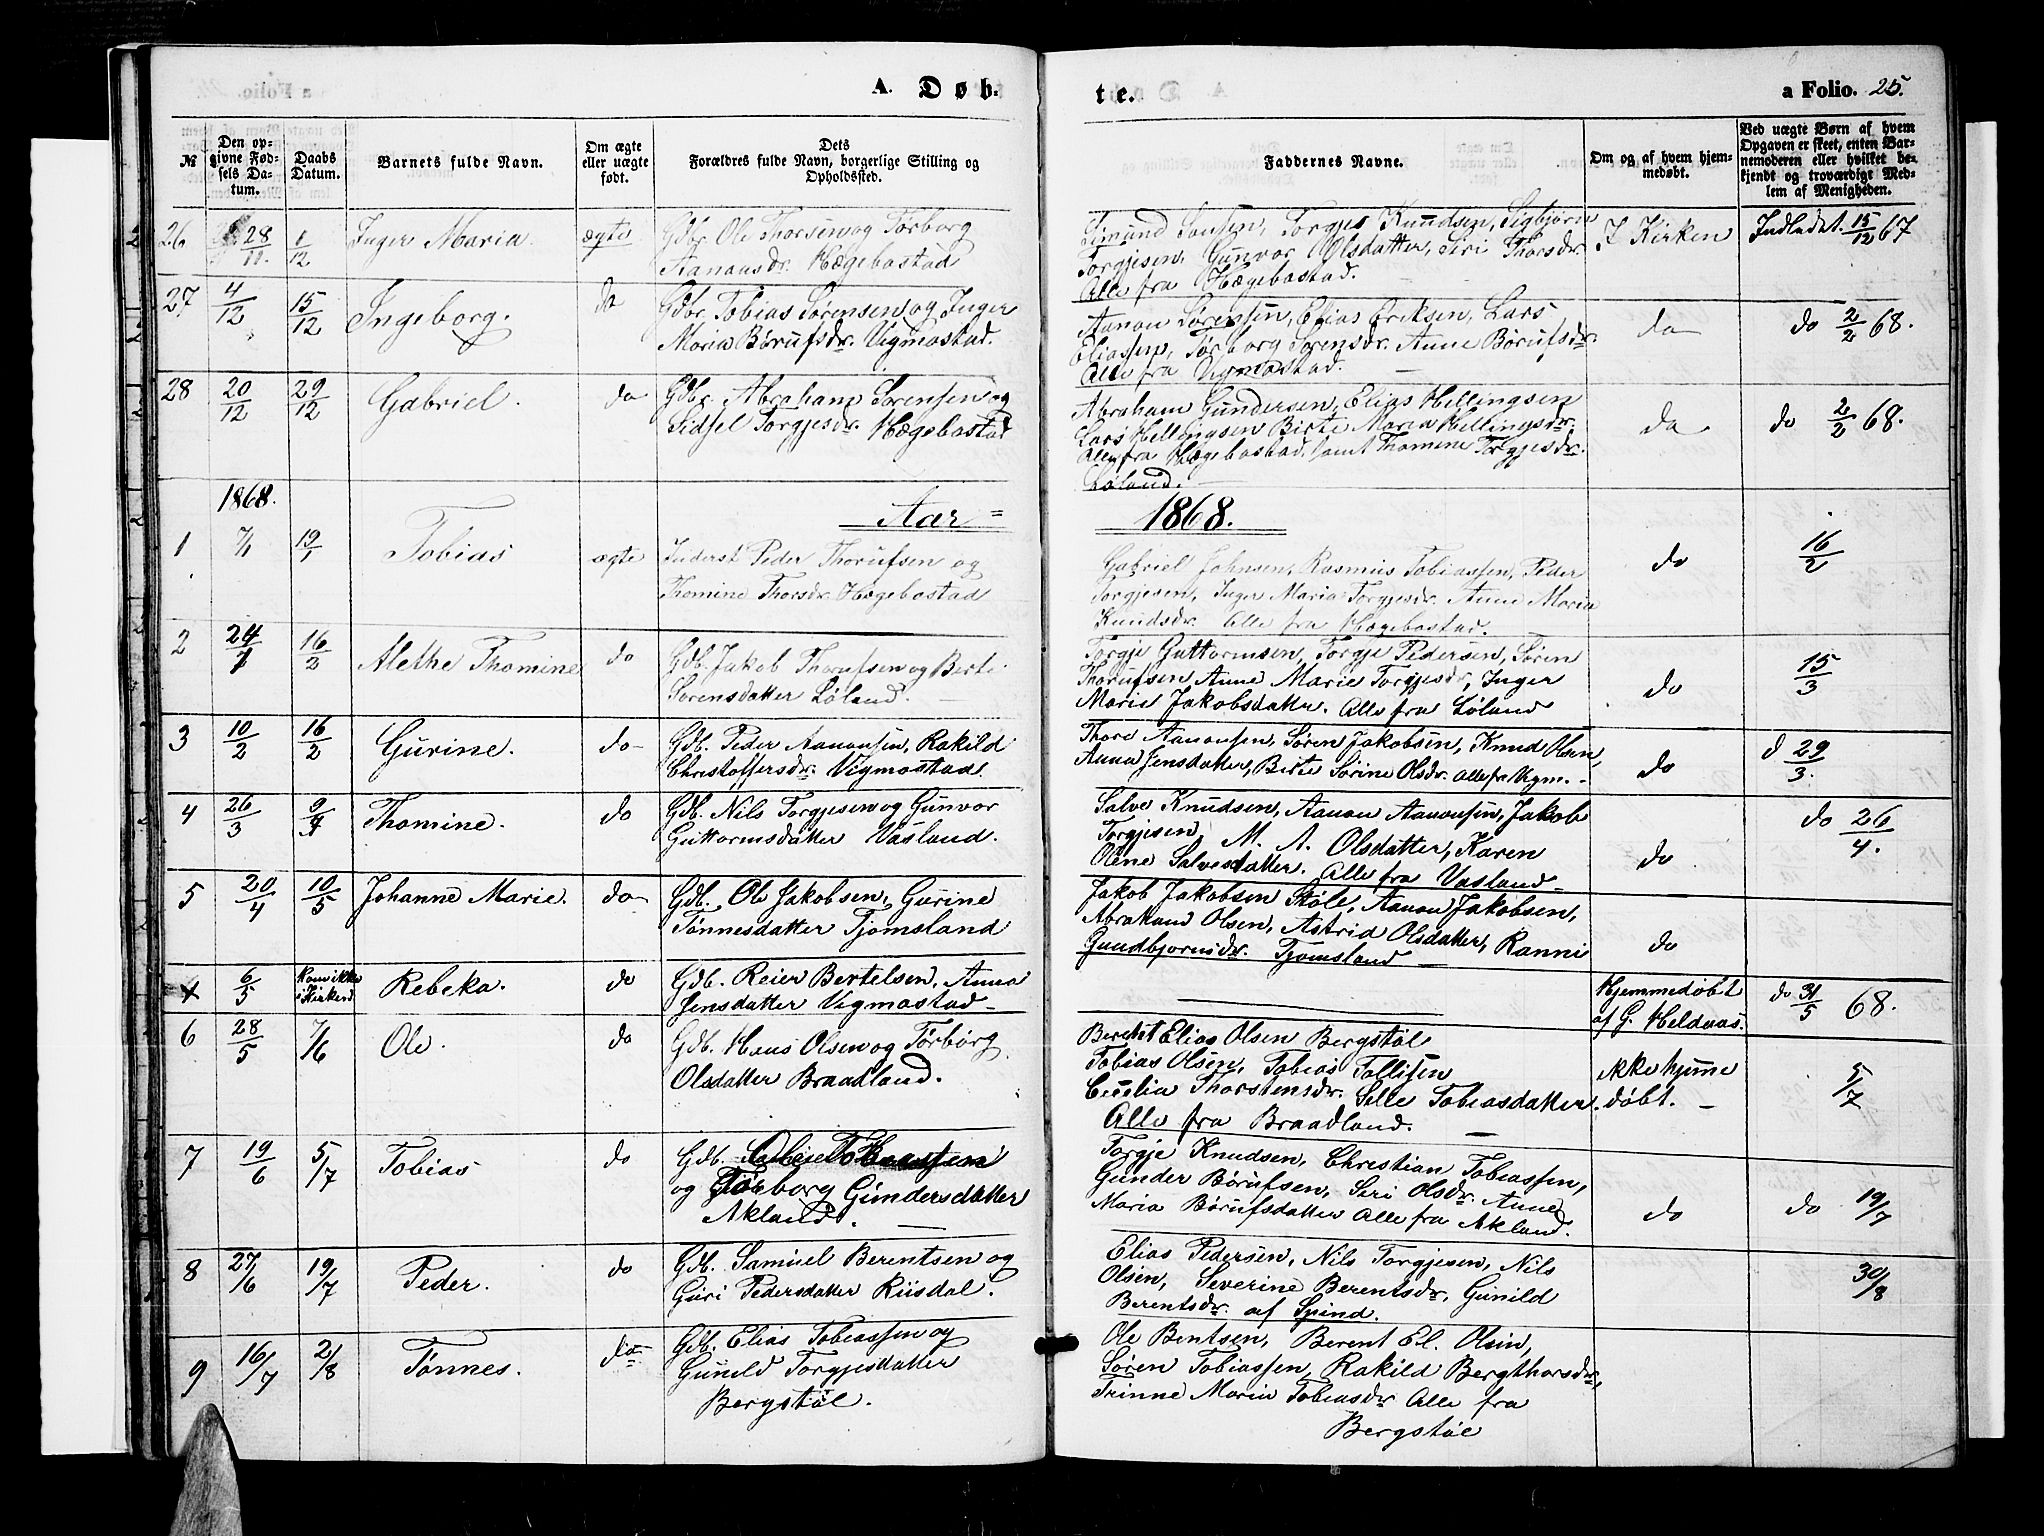 A. Døb-
№
Den op-
givne Fød-
sels Da-
tum.
Daabs
Datum.
Barnets fulde Navn.
Om ægte
eller uægte
født.
Dets
Forældres fulde Navn, borgerlige Stilling og
Opholdssted.
26 28/11. 1/12 Inger Maria. ægte Gdbr Ole Thorsen og Tørborg
Aanonsdr. Hægebostad
27 4/12 15/12 Ingeborg. do Gdbr. Tobias Sørensen og Inger
Maria Børufsdr. Vigmostad.
28 20/12 29/12 Gabriel. do Gdbr. Abraham Sorensen og
Sidsel Torgjesdr. Hægebostad
1868. Aar
1 7/1 19/1 Tobias ægte Inderst Peder Thorufsen og
Thomine Thorsdr. Hægebostad
2 24/1 16/2 Alethe Thomine do Gdb. Jakob Thorufsen og Berte
Sorensdatter Løland.
3 10/2 16/2 Gurine. do Gdb. Peder Aanonsen, Rakild
Christoffersdr. Vigmostad.
4 26/3 9/4 Thomine. do Gdb. Nils Torgjesen og Gunvor
Guttormsdatter Vasland.
5 20/4 10/5 Johanne Marie. do Gdb. Ole Jakobsen, Gurine
Tønnesdatter Tjomsland
6/5 Kom ikke
i Kirken Rebeka. do Gdb. Reier Bertelsen, Anna
Jensdatter Vigmostad
6 28/5 7/6 Ole. do Gdb. Hans Olsen og Tørborg
Olsdatter Braadland.
7 19/6 5/7 Tobias do Gdb.
og Tørborg Gundersdatter
Akland.
8 27/6 19/7 Peder. do Gdb. Samuel Berentsen og
Guri Pedersdatter Riisdal.
9 16/7 2/8 Tønnes. do Gdb. Elias Tobiassen og
Gunild Torgjesdatter
Bergstøl.
te. a Folio. 25.
Faddernes Navne.
Om og af hvem hjem-
medøbt.
Ved uægte Børn af hvem
Opgaven er skeet, enten Bar-
nemoderen eller hvilket be-
kjendt og troværdigt Med-
lem af Menigheden.
Simund Torgjes Knudsen, Sigbjørn
Torgjesen, Gunvor Olsdatter, Siri Thorsdr.
Alle fra Hægebostad.
I Kirken Indledet. 15/12 67
Aanon Sørensen, Elias Eriksen, Lars
Eliassen, Tørborg Sorensdr. Anne Børufsdr.
Alle fra Vigmostad.
do do 2/2 68.
Abraham Gundersen, Elias Hellingsen
Lars Hellingsen Birte Maria Hellingsdr.
Alle fra Hægebostad, samt Thomine Torgjesdr.
Løland.
do do 2/2 68.
1868.
Gabriel Johnsen, Rasmus Tobiassen, Peder
Torgjesen, Inger Maria Torgjesdr. Anne Maria
Knudsdr. Alle fra Hægebostad.
do 16/2
Torgje Guttormsen, Torgje Pedersen, Søren
Thorufsen Anne Marie Torgjesdr, Inger
Marie Jakobsdatter. Alle fra Løland
do 15/3
Thore Aanonsen, Søren Jakobsen, Knud Olsen,
Anna Jensdatter, Berte Sørine Olsdr. Alle fra Vigm.
do d 29/3.
Salve Knudsen, Aanon Aanonsen, Jakob
Torgjesen, M. A. Olsdatter, Karen
Olene Salvesdatter. Alle fra Vasland
do do 26/4.
Jakob Jakobsen Støle, Aanon Jakobsen,
Abraham Olsen, Astrid Olsdatter, Ranni
Gundbjornsdr. Tjomsland
do
Hjemmedøbt
af G. Heldaas. do 31/5 68.
Berent Elias Olsen Bergstøl
Tobias Olsen, Tobias Tallisen
Cecelia Thorstensdr. Selle Tobiasdatter.
Alle fra Braadland.
ikke hjeme
døbt. 5/7
Torgje Knudsen, Christian Tobiassen,
Gunder Børufsen, Seri Olsdr. Anne
Maria Børufsdatter Alle fra Akland.
do do 19/7
Elias Pedersen, Nils Torgjesen, Nils
Olsen, Severine Berentsdr. Gunild
Berentsdr. af Spind.
30/8
Ole Bentsen, Berent El. Olsen,
Søren Tobiassen, Rakild Bergthorsdr,
Trinne Maria Tobiasdr Alle fra
Bergstøl